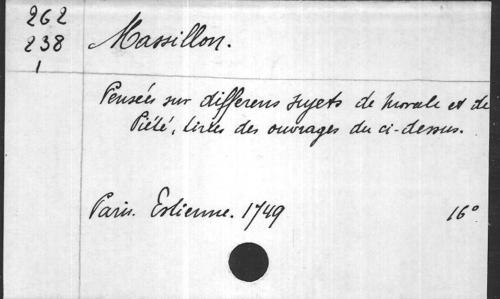 262
238
1
Massillon.
Pensées sur differens sujets de morale et de
Piété, tirées des ouvrages du ci-dessus.
Paris. Estienne. 1749 16°